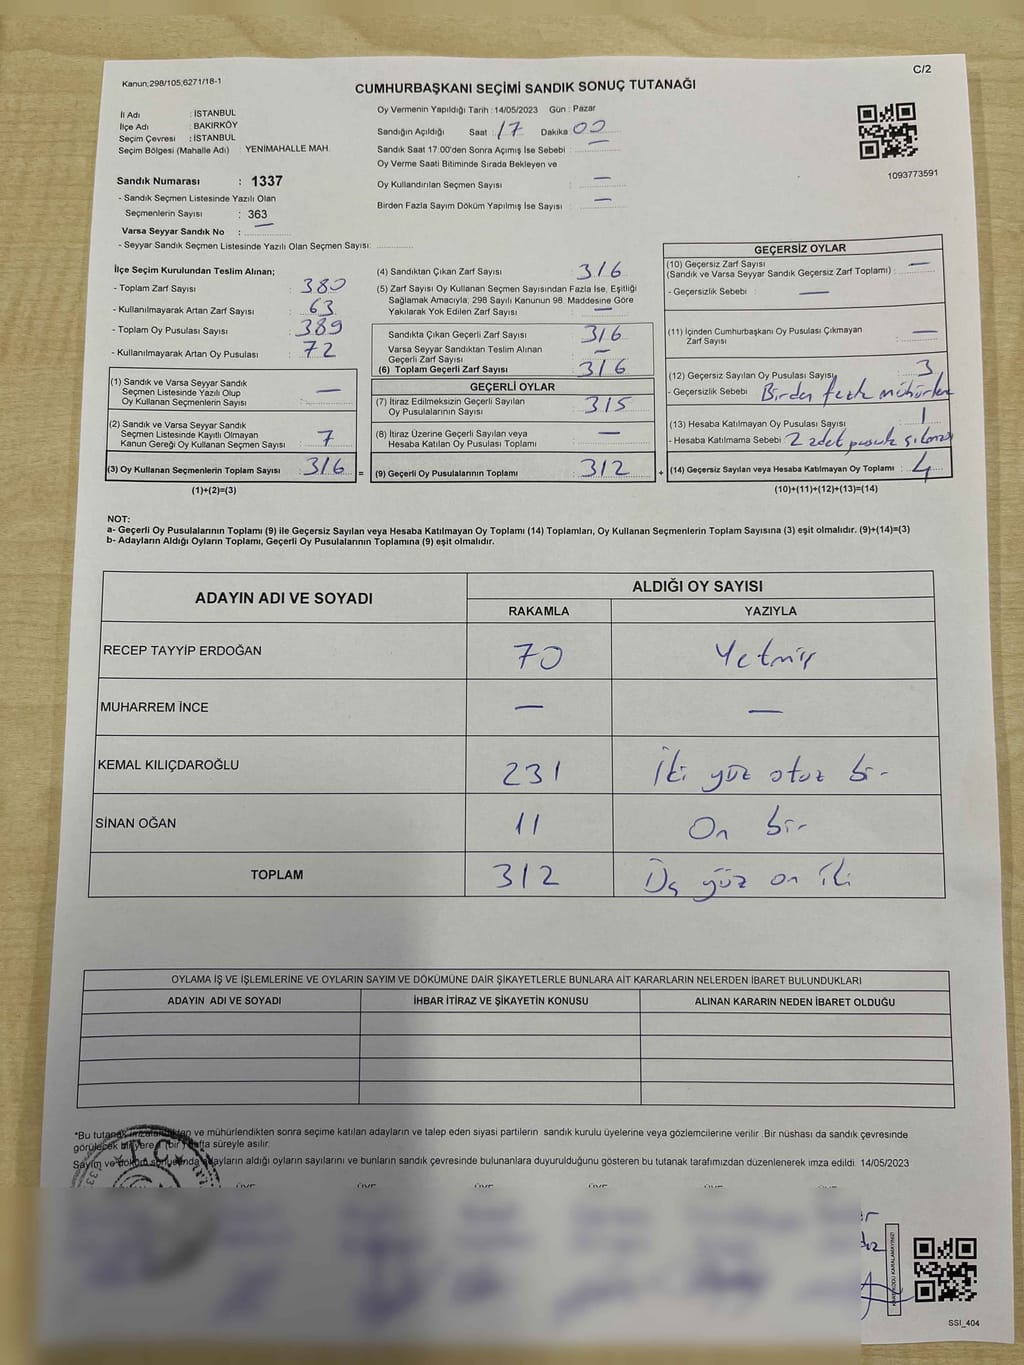 C/2
Kanun;298/105,6271/18-1
CUMHURBAŞKANI SEÇİMİ SANDIK SONUÇ TUTANAĞI
İl Adı : İSTANBUL
İlçe Adı : BAKIRKÖY
Seçim Çevresi : İSTANBUL
Seçim Bölgesi (Mahalle Adı) : YENİMAHALLE MAH.
Sandık Numarası : 1337
- Sandık Seçmen Listesinde Yazılı Olan
Seçmenlerin Sayısı : 363
Varsa Seyyar Sandık No : —
- Seyyar Sandık Seçmen Listesinde Yazılı Olan Seçmen Sayısı:
Oy Vermenin Yapıldığı Tarih : 14/05/2023 Gün : Pazar
Sandığın Açıldığı Saat : 17 Dakika : 00
Sandık Saat 17:00'den Sonra Açımış İse Sebebi : —
Oy Verme Saati Bitiminde Sırada Bekleyen ve
Oy Kullandırılan Seçmen Sayısı : —
Birden Fazla Sayım Döküm Yapılmış İse Sayısı : —
1093773591
İlçe Seçim Kurulundan Teslim Alınan;
- Toplam Zarf Sayısı : 380
- Kullanılmayarak Artan Zarf Sayısı : 63
- Toplam Oy Pusulası Sayısı : 389
- Kullanılmayarak Artan Oy Pusulası : 72
(1) Sandık ve Varsa Seyyar Sandık
Seçmen Listesinde Yazılı Olup
Oy Kullanan Seçmenlerin Sayısı : —
(2) Sandık ve Varsa Seyyar Sandık
Seçmen Listesinde Kayıtlı Olmayan
Kanun Gereği Oy Kullanan Seçmen Sayısı : 7
(3) Oy Kullanan Seçmenlerin Toplam Sayısı : 316
(1)+(2)=(3)
(4) Sandıktan Çıkan Zarf Sayısı : 316
(5) Zarf Sayısı Oy Kullanan Seçmen Sayısından Fazla İse, Eşitliği
Sağlamak Amacıyla; 298 Sayılı Kanunun 98. Maddesine Göre
Yakılarak Yok Edilen Zarf Sayısı : —
Sandıkta Çıkan Geçerli Zarf Sayısı : 316
Varsa Seyyar Sandıktan Teslim Alınan
Geçerli Zarf Sayısı : —
(6) Toplam Geçerli Zarf Sayısı : 316
GEÇERLİ OYLAR
(7) İtiraz Edilmeksizin Geçerli Sayılan
Oy Pusulalarının Sayısı : 315
(8) İtiraz Üzerine Geçerli Sayılan veya
Hesaba Katılan Oy Pusulası Toplamı : —
= (9) Geçerli Oy Pusulalarının Toplamı : 312
GEÇERSİZ OYLAR
(10) Geçersiz Zarf Sayısı
(Sandık ve Varsa Seyyar Sandık Geçersiz Zarf Toplamı) : —
- Geçersizlik Sebebi : —
(11) İçinden Cumhurbaşkanı Oy Pusulası Çıkmayan
Zarf Sayısı : —
(12) Geçersiz Sayılan Oy Pusulası Sayısı : 3
- Geçersizlik Sebebi : Birden fazla mühürleme
(13) Hesaba Katılmayan Oy Pusulası Sayısı : 1
- Hesaba Katılmama Sebebi : 2 adet pusula
+ (14) Geçersiz Sayılan veya Hesaba Katılmayan Oy Toplamı : 4
(10)+(11)+(12)+(13)=(14)
NOT:
a- Geçerli Oy Pusulalarının Toplamı (9) ile Geçersiz Sayılan veya Hesaba Katılmayan Oy Toplamı (14) Toplamları, Oy Kullanan Seçmenlerin Toplam Sayısına (3) eşit olmalıdır. (9)+(14)=(3)
b- Adayların Aldığı Oyların Toplamı, Geçerli Oy Pusulalarının Toplamına (9) eşit olmalıdır.
ADAYIN ADI VE SOYADI ALDIĞI OY SAYISI
RAKAMLA YAZIYLA
RECEP TAYYİP ERDOĞAN 70 Yetmiş
MUHARREM İNCE — —
KEMAL KILIÇDAROĞLU 231 İki yüz otuz bir
SİNAN OĞAN 11 On bir
TOPLAM 312 Üç yüz on iki
OYLAMA İŞ VE İŞLEMLERİNE VE OYLARIN SAYIM VE DÖKÜMÜNE DAİR ŞİKAYETLERLE BUNLARA AİT KARARLARIN NELERDEN İBARET BULUNDUKLARI
ADAYIN ADI VE SOYADI İHBAR İTİRAZ VE ŞİKAYETİN KONUSU ALINAN KARARIN NEDEN İBARET OLDUĞU
*Bu tutanak imzalandıktan ve mühürlendikten sonra seçime katılan adayların ve talep eden siyasi partilerin sandık kurulu üyelerine veya gözlemcilerine verilir .Bir nüshası da sandık çevresinde
görülecek bir yere 1 (bir) hafta süreyle asılır.
Sayım ve döküm sonucunda adayların aldığı oyların sayılarını ve bunların sandık çevresinde bulunanlara duyurulduğunu gösteren bu tutanak tarafımızdan düzenlenerek imza edildi. 14/05/2023
T.C.
KAREKODU KARALAMAYINIZ!
SSI_404